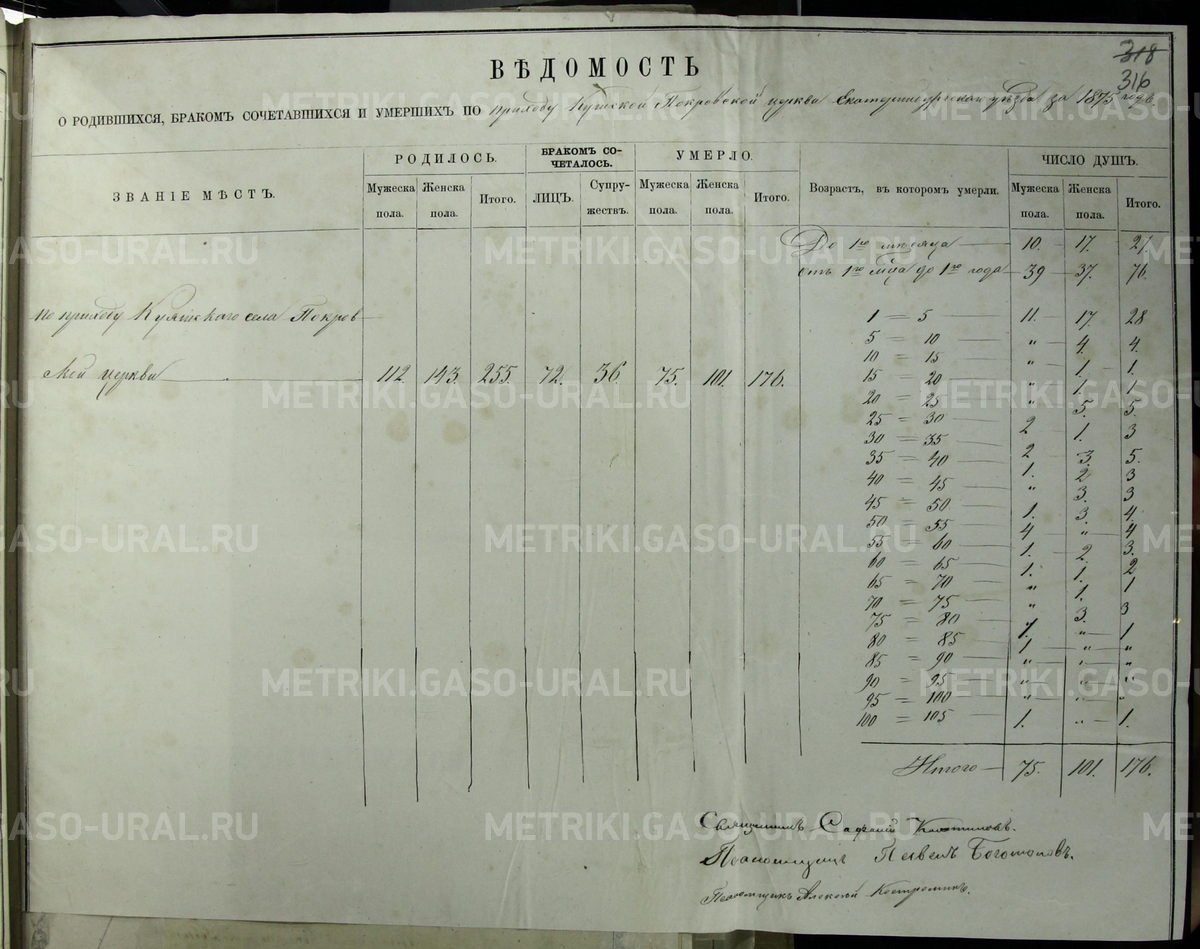 318
316
ВѢДОМОСТЬ
О РОДИВШИХСЯ, БРАКОМЪ СОЧЕТАВШИХСЯ И УМЕРШИХЪ ПО приходу Покровской церкви за 1875 годъ.
ЗВАНІЕ МѢСТЪ. РОДИЛОСЬ. БРАКОМЪ СО- ЧЕТАЛОСЬ. УМЕРЛО. Возрастъ, въ которомъ умерли. ЧИСЛО ДУШЪ.
Мужеска пола. Женска пола. Итого. ЛИЦЪ. Супру- жествъ. Мужеска пола. Женска пола. Итого. Мужеска пола. Женска пола. Итого.
До 1го мѣсяца 10. 17. 27.
отъ 1го мѣца до 1го года 39 37. 76.
По приходу села Покров
1 = 5 11. 17. 28
5 = 10 " 4. 4.
ской церкви 112. 143. 255. 72. 36. 75. 101. 176.
10 = 15 " 1. 1.
15 = 20 " 1. 1
20 = 25 " 5. 5.
25 = 30 2 1. 3
30 = 35 2 3. 5.
35 = 40 1. 2 3
40 = 45 " 3. 3
45 = 50 1. 3. 4.
50 = 55 4 " 4
55 = 60 1. 2. 3.
60 = 65 1. 1. 2
65 = 70 " 1. 1
70 = 75 " 3. 3
75 = 80 1. " 1
80 = 85 1 " "
85 = 90 " " "
90 = 95 " " "
95 = 100 " " "
100 = 105 1. " 1.
Итого 75. 101. 176.
Священникъ
Псаломщикъ Павелъ
Псаломщикъ Алексѣй Костроминъ.
METRIKI.GASO-URAL.RU